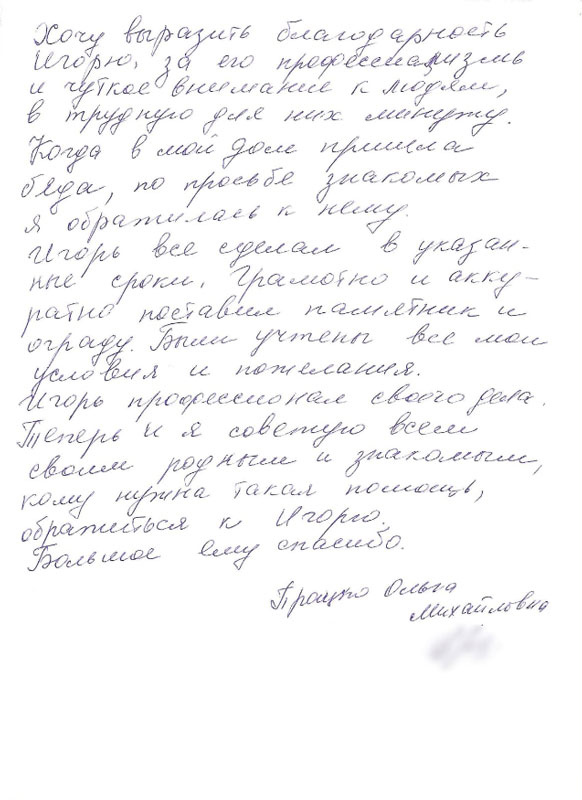 Хочу выразить благодарность
Игорю, за его профессиализмь
и чуткое внимание к людям,
в трудную для них минуту.
Когда в мой дом пришла
беда, по просьбе знакомых
я обратилась к нему.
Игорь все сделал в указан-
ные сроки. Грамотно и акку-
ратно поставил памятник и
ограду. Были учтены все мои
условия и пожелания.
Игорь профессионал своего дела.
Теперь и я советую всем
своим родным и знакомым,
кому нужна такая помощь,
обратиться к Игорю.
Большое ему спасибо.
Процко Ольга
Михайловна